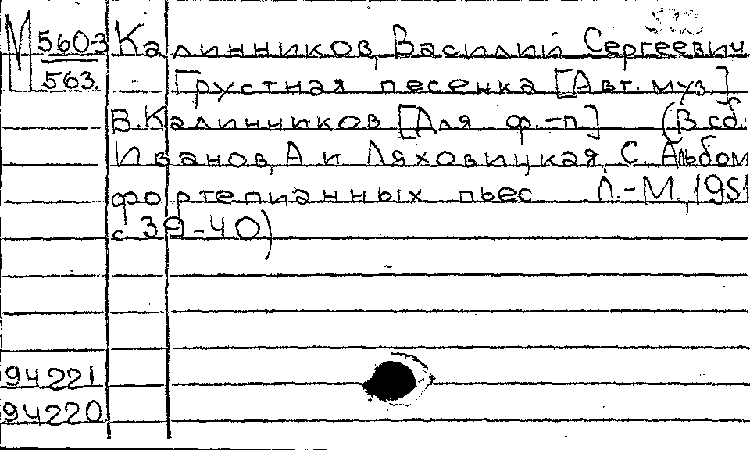 М 5603 Калинников, Василий Сергеевич
563. - Грустная песенка [Авт. муз.]
В. Калинников [Для ф.-п] (В сб.:
Иванов, А и Ляховицкая, С. Альбом
фортепианных пьес Л.-М., 1951
с 39-40)
94221
94220